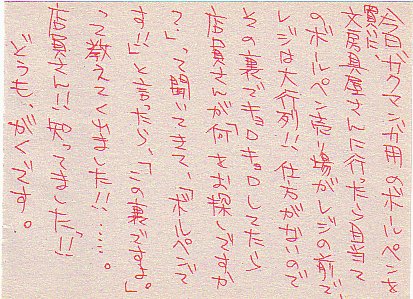 今回ガクマンガ用のボールペンを
買いに
文房具屋さんに行ったら目当て
のボールペン売り場がレジの前で
レジは大行列!!仕方がないので
その裏でキョロキョロしてたら
店員さんが「何をお探しですか
?」って聞いてきて、「ボールペンで
す!!」と言ったら、「この裏ですよ。」
って教えてくれました!!……。
店員さん!!知ってました!!
どうも、がくです。